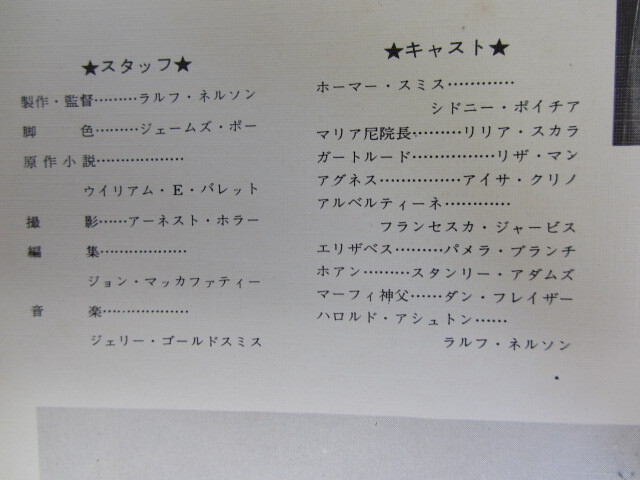 ★スタッフ★
製作・監督………ラルフ・ネルソン
脚　　色………ジェームズ・ポー
原作小説………………
ウイリアム・E・バレット
撮　　影……アーネスト・ホラー
編　　集………………
ジョン・マッカファティー
音　　楽………………
ジェリー・ゴールドスミス
★キャスト★
ホーマー・スミス…………
シドニー・ポイチア
マリア尼院長………リリア・スカラ
ガートルード……………リザ・マン
アグネス……………アイサ・クリノ
アルベルティーネ…………
フランセスカ・ジャービス
エリザベス………パメラ・ブランチ
ホアン………スタンリー・アダムズ
マーフィ神父……ダン・フレイザー
ハロルド・アシュトン……
ラルフ・ネルソン